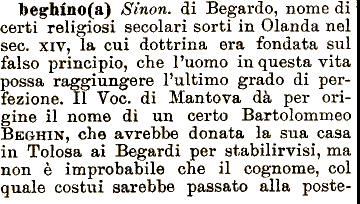 beghino(a) Sinon. di Begardo, nome di
certi religiosi secolari sorti in Olanda nel
sec. XIV, la cui dottrina era fondata sul
falso principio, che l'uomo in questa vita
possa raggiungere l'ultimo grado di per-
fezione. Il Voc. di Mantova dà per ori-
gine il nome di un certo Bartolommeo
BEGHIN, che avrebbe donata la sua casa
in Tolosa ai Begardi per stabilirvisi, ma
non è improbabile che il cognome, col
quale costui sarebbe passato alla poste-